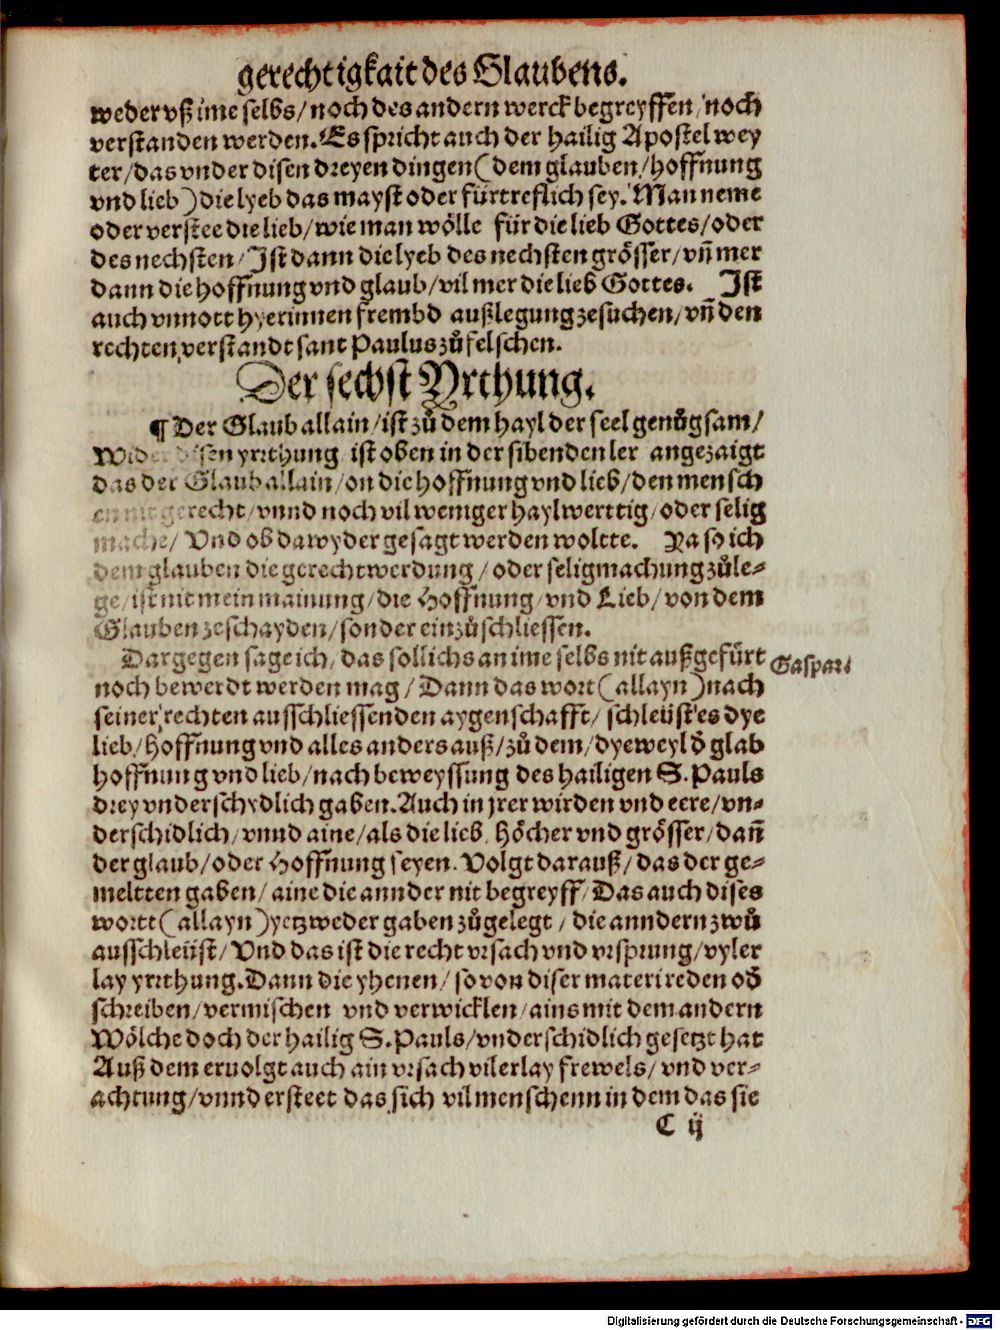 gerechtigkait des Glaubens.
weder vß ime selbs/ noch des andern werck begreyffen/ noch
verstanden werden. Es spricht auch der hailig Apostel wey
ter/ das vnder disen dreyen dingen (dem glauben/ hoffnung
vnd lieb) die lyeb das mayst oder fürtreflich sey. Man neme
oder verstee die lieb/ wie man wölle für die lieb Gottes/ oder
des nechsten/ Ist dann die lyeb des nechsten grösser/ vñ mer
dann die hoffnung vnd glaub/ vil mer die lieb Gottes. Ist
auch vnnott hyerinnen frembd außlegung zesuchen/ vñ den
rechten verstandt sant Paulus zů felschen.
Der sechst Yrthung.
¶ Der Glaub allain/ ist zů dem hayl der seel genůgsam/
Wider disen yrrthung ist oben in der sibenden ler angezaigt
das der Glaub allain/ on die hoffnung vnd lieb/ den mensch
en nit gerecht/ vnnd noch vil weniger haylwerttig/ oder selig
mache/ Vnd ob dawyder gesagt werden woltte. Ja so ich
dem glauben die gerechtwerdung/ oder seligmachung zůle-
ge/ ist nit mein mainung/ die Hoffnung vnd Lieb/ von dem
Glauben zeschayden/ sonder einzůschliessen.
Dargegen sage ich/ das sollichs an ime selbs nit außgefürt
Gaspar:
noch bewerdt werden mag/ Dann das wort (allayn) nach
seiner rechten ausschliessenden aygenschafft/ schleüst es dye
lieb/ hoffnung vnd alles anders auß/ zů dem/ dyeweyl d̄ glab
hoffnung vnd lieb/ nach beweyssung des hailigen S. Pauls
drey vnderschydlich gaben. Auch in jrer wirden vnd eere/ vn-
derschidlich/ vnnd aine/ als die lieb/ höcher vnd grösser/ dañ
der glaub/ oder Hoffnung seyen. Volgt darauß/ das der ge-
meltten gaben/ aine die annder nit begreyff/ Das auch dises
wortt (allayn) yetzweder gaben zůgelegt/ die anndern zwů
ausschleüst/ Vnd das ist die recht vrsach vnd vrsprung/ vyler
lay yrrthung. Dann die yhenen/ so von diser materi reden od̄
schreiben/ vermischen vnd verwicklen/ ains mit dem andern
Wölche doch der hailig S. Pauls/ vnderschidlich gesetzt hat
Auß dem eruolgt auch ain vrsach vilerlay frewels/ vnd ver-
achtung/ vnnd ersteet das sich vil menschenn in dem das sie
C ij
Digitalisierung gefördert durch die Deutsche Forschungsgemeinschaft - DFG